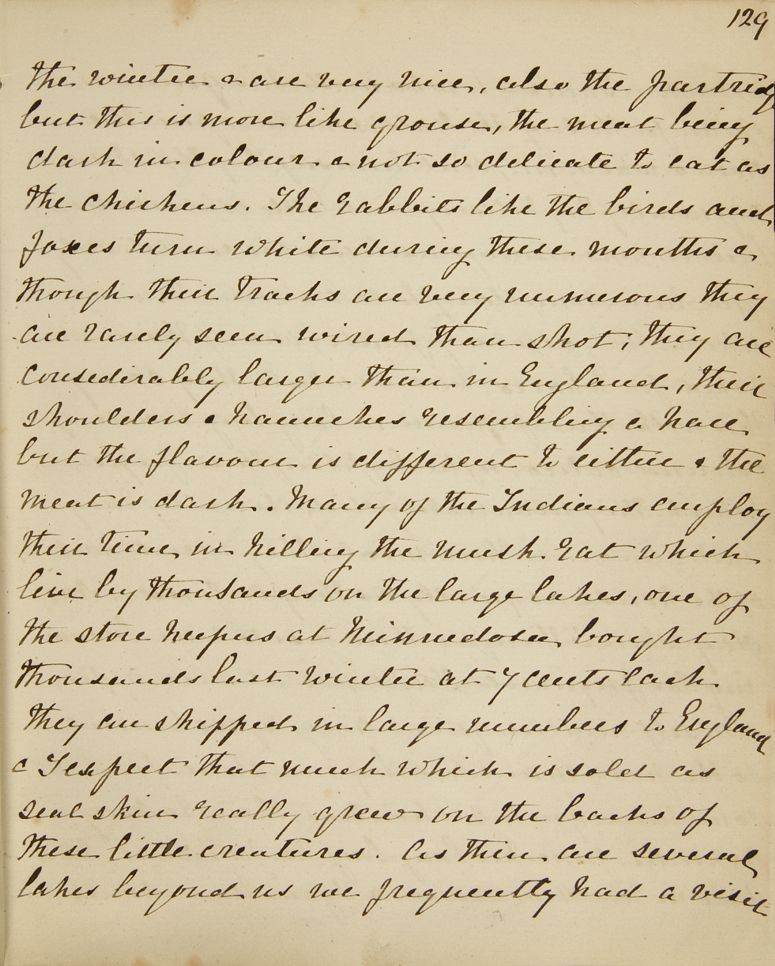 129
the winter & are very nice, also the partridg
but this is more like grouse, the meat being
dark in colour & not so delicate to eat as
the chickens. The rabbits like the birds and
foxes turn white during these months &
though their tracks are very numerous they
are rarely seen wired than shot; they are
considerably larger than in England, their
shoulders & haunches resembling a hare
but the flavour is different to either & the
meat is dark. Many of the Indians employ
their time in killing the musk. rat which
live by thousands on the large lakes, one of
the store keepers at Minnedosa bought
thousands last winter at 7 cents each
they are shipped in large numbers to England
& I expect that much which is sold as
seal skin really grew on the backs of
these little creatures. As there are several
lakes beyond us we frequently had a visit